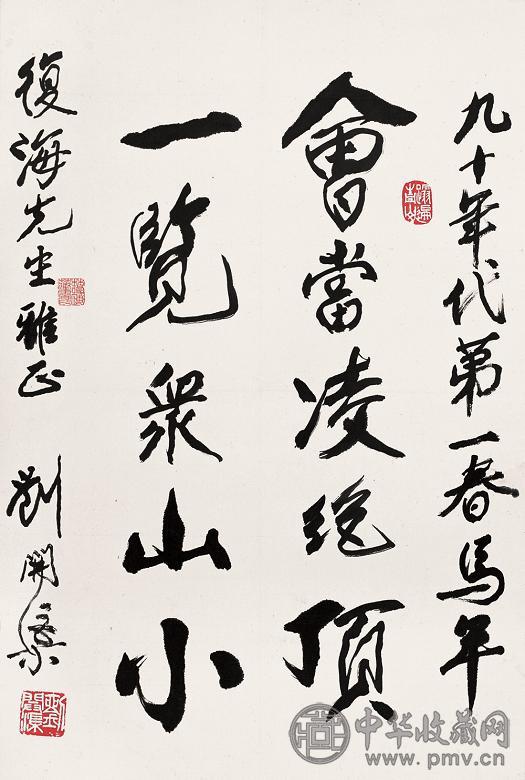 九十年代第一春馬年
會當凌絕頂
一覽衆山小
復海先生雅正
劉開渠
中华收藏网
www.pmv.cn